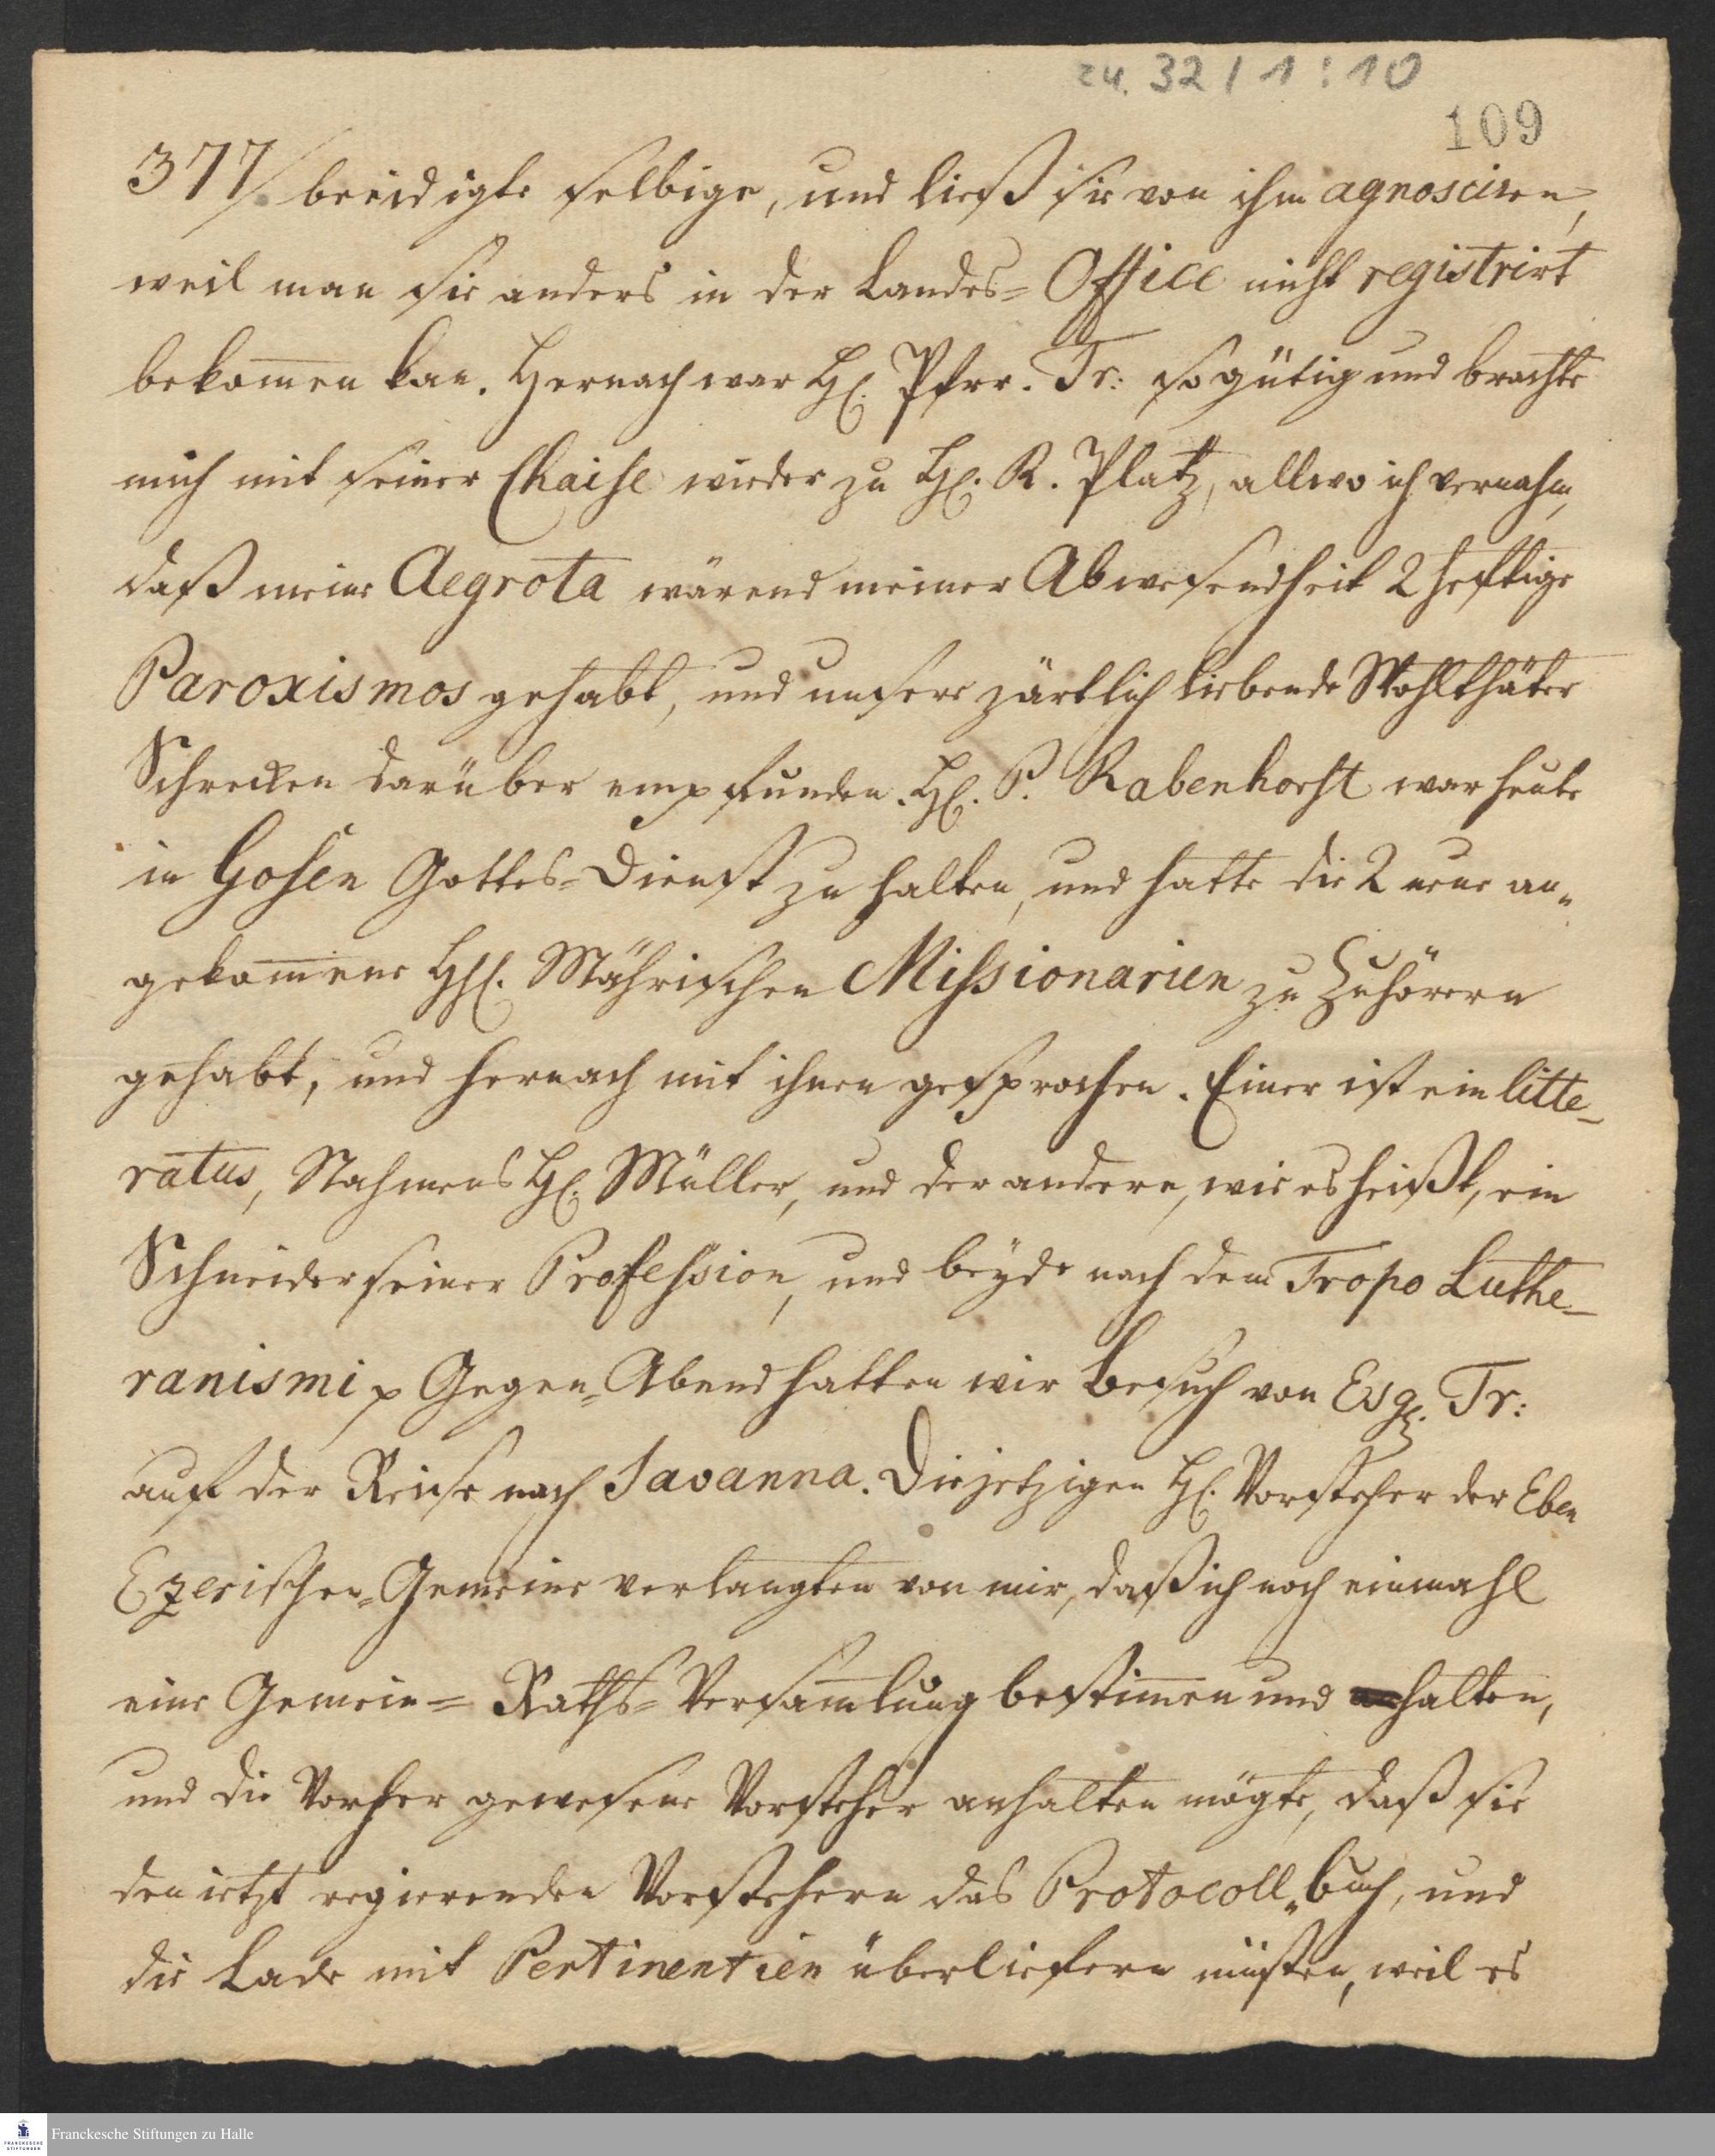 zu. 32 / 1 : 10
109
377/. beeidigte selbige, und ließ sie von ihm agnosciren,
weil man sie anders in der Landes= Office nicht registrirt
bekom̄en kan. Hernach war H. Pfrr. Tr: so gütig und brachte
mich mit seiner Chaise wieder zu H. R. Platz, allwo ich vernahm,
daß meine Aegrota wärend meiner Abwesendheit 2 heftige
Paroxismos gehabt, und unsere zärtlich liebende Wohlthäter
Schrecken darüber empfunden. H. P. Rabenhorst war heute
in Gosen Gottes=Dienst zu halten, und hatte die 2 neue an=
gekom̄ene HH. Mährischen Missionarien zu Zuhörern
gehabt, und hernach mit ihnen gesprochen. Einer ist ein litte=
ratus, Nahmens H. Müller, und der andere, wie es heißt, ein
Schneider seiner Profession, und beyde nach dem Tropo Luthe=
ranismi p Gegen=Abend hatten wir Besuch von Esq. Tr:
auf der Reise nach Savanna. Die jetzigen H. Vorsteher der Eben
Ezerischen=Gemeine verlangten von mir, daß ich noch einmahl
eine Gemein= Raths=Versam̄lung bestim̄en und halten,
und die Vorher gewesene Vorsteher anhalten mögte, daß sie
den ietzt regierenden Vorstehern das Protocoll=buch, und
die Lade mit Pertinentien überliefern müsten, weil es
Franckesche Stiftungen zu Halle
FRANCKESCHE
STIFTUNGEN